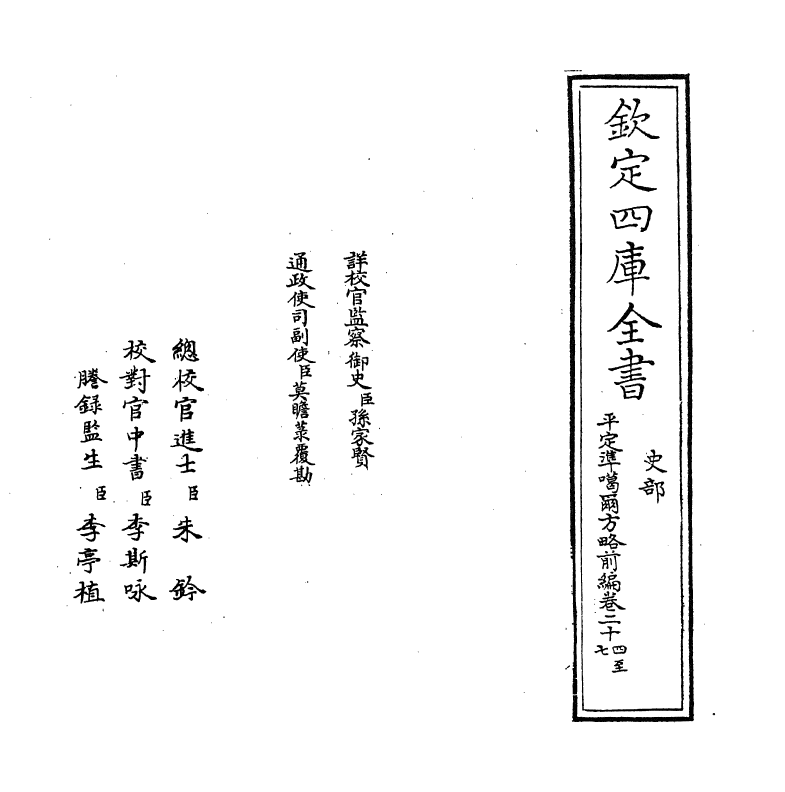 欽定四庫全書
史部
平定準噶爾方略前編卷二十四至七
詳校官監察御史臣孫家賢
通政使司副使臣莫瞻菉覆勘
總校官進士臣朱鈐
校對官中書臣李斯咏
謄録監生臣李亭植